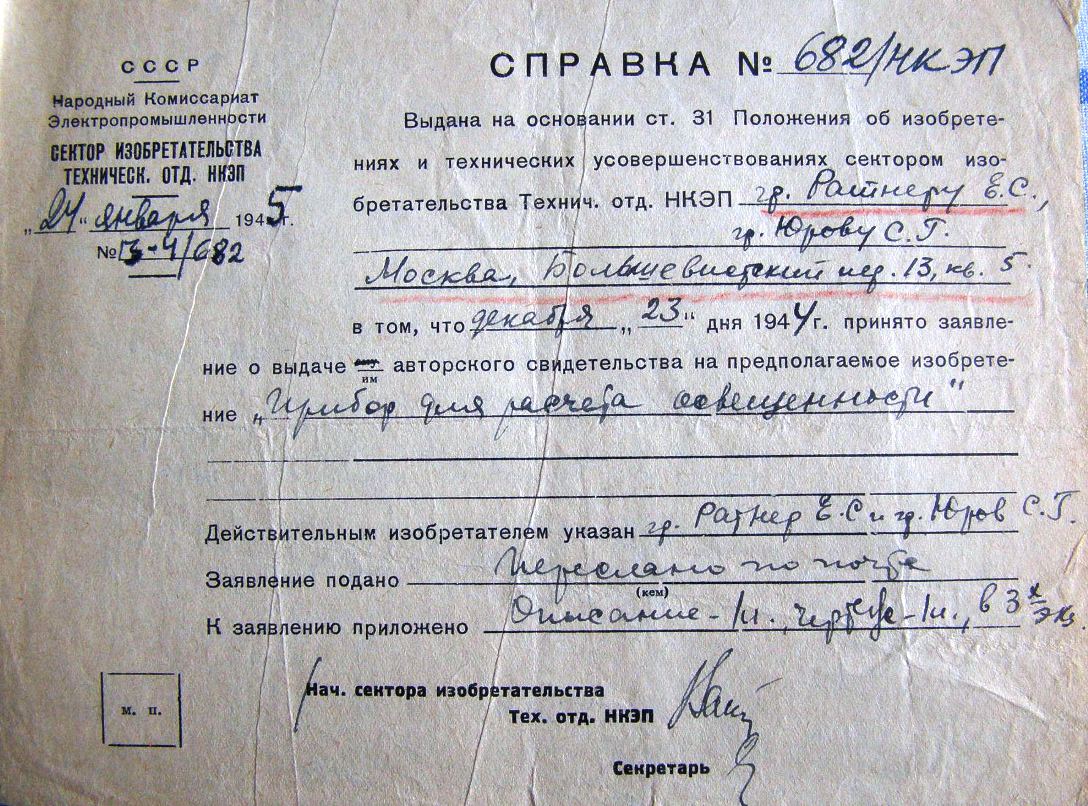 СССР
Народный Комиссариат
Электропромышленности
СЕКТОР ИЗОБРЕТАТЕЛЬСТВА
ТЕХНИЧЕСК. ОТД. НКЭП
„24" января 1945г.
№ 13-4/682
СПРАВКА № 682/НКЭП
Выдана на основании ст. 31 Положения об изобрете-
ниях и технических усовершенствованиях сектором изо-
бретательства Технич. отд. НКЭП гр. Ратнеру Е.С.,
гр. Юрову С.Г.
Москва, Большевистский пер. 13, кв. 5.
в том, что декабря „23" дня 1944г. принято заявле-
ние о выдаче им авторского свидетельства на предполагаемое изобрете-
ние „Прибор для расчета освещенности"
Действительным изобретателем указан гр. Ратнер Е.С и гр. Юров С.Г.
Заявление подано Переслано по почте
(кем)
К заявлению приложено Описание - 1л., чертеж - 1л., в 3х экз.
Нач. сектора изобретательства
Тех. отд. НКЭП
м. п.
Секретарь